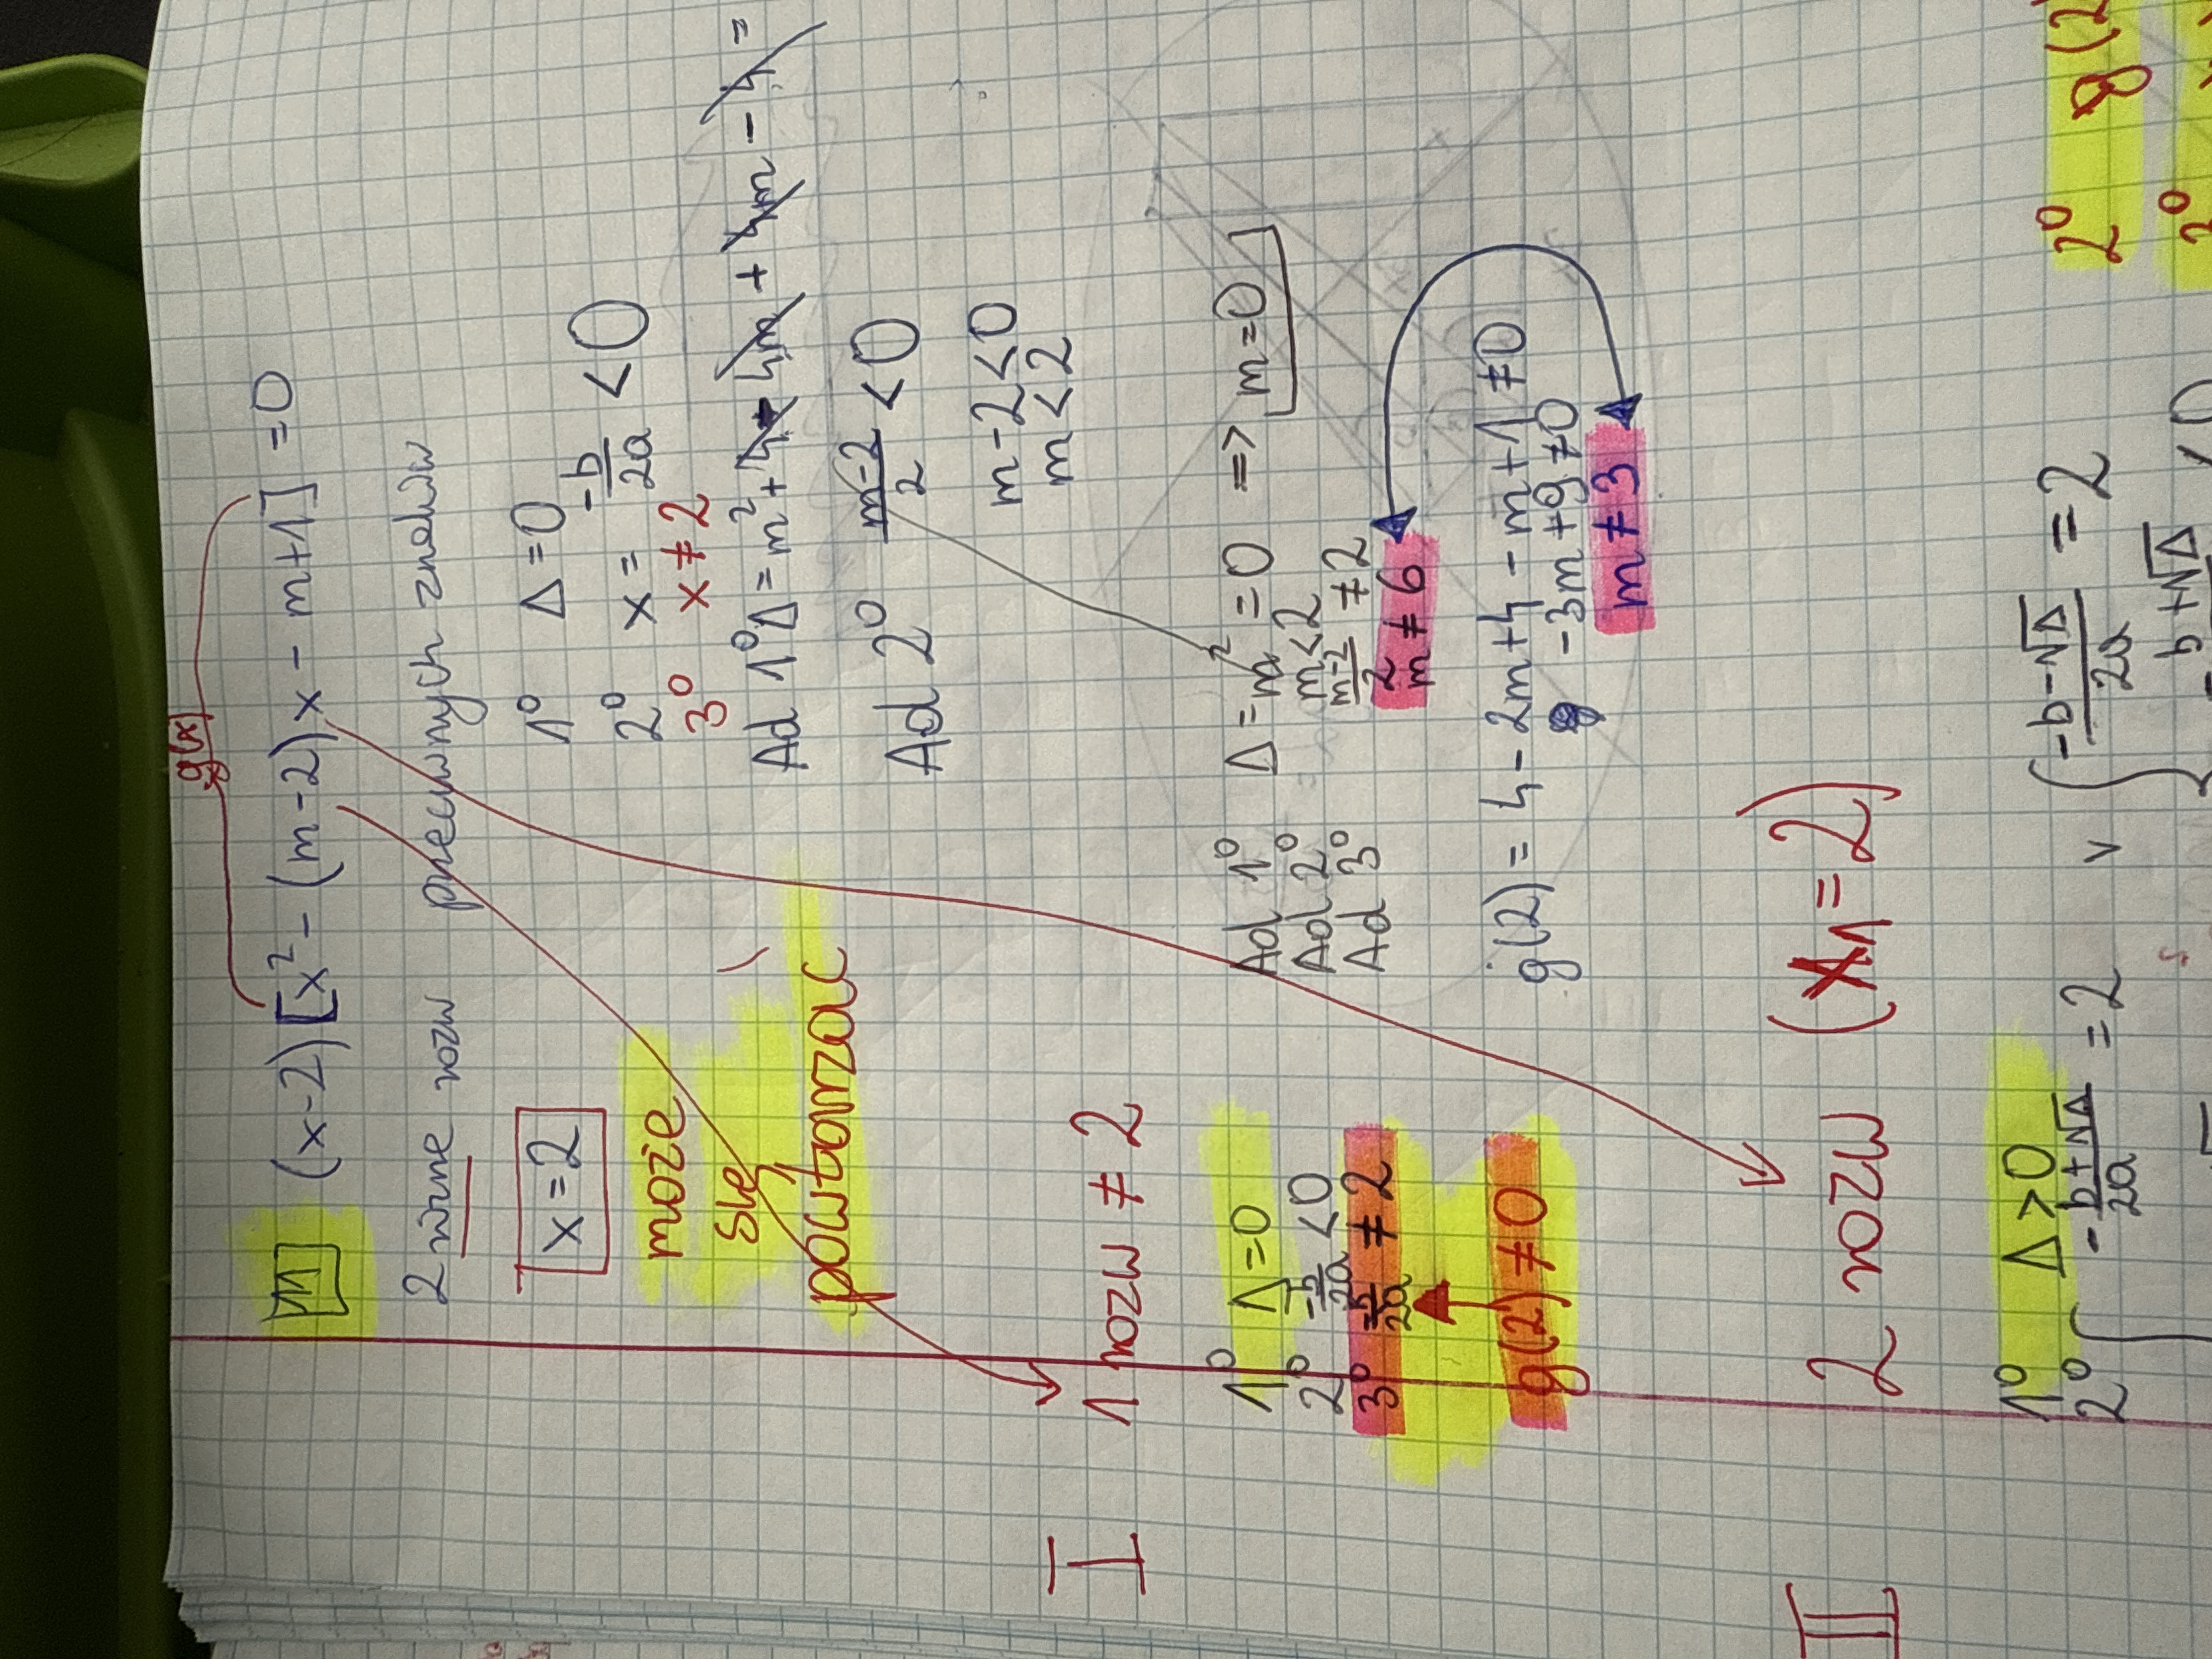 g(x)
11 (x-2)[x² - (m-2)x - m+1] = 0
2 różne rozw przeciwnych znaków
x = 2
może
się
powtarzać
1° Δ = 0
2° x = -b/2a < 0
3° x ≠ 2
Ad 1° Δ = m² + 4 - 4m + 4m - 4 =
Ad 2° m-2/2 < 0
m-2 < 0
m < 2
I 1 rozw ≠ 2
1° Δ = 0
2° -b/2a < 0
3° -b/2a ≠ 2
g(2) ≠ 0
Ad 1° Δ = m² = 0 => m = 0
Ad 2° m < 2
Ad 3° m-2/2 ≠ 2
m ≠ 6
g(2) = 4 - 2m + 4 - m + 1 ≠ 0
-3m + 9 ≠ 0
m ≠ 3
II 2 rozw (x1 = 2)
1° Δ > 0
2° -b+√Δ/2a = 2 v -b-√Δ/2a = 2
-b+√Δ < 0
2° g(2)
2°